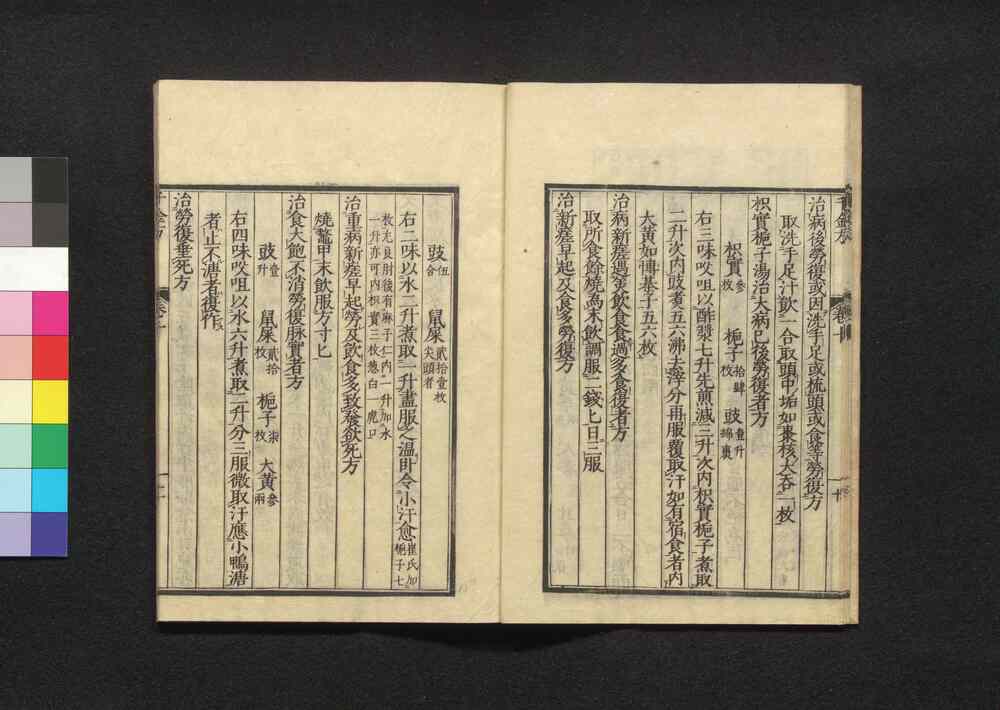 千金方　卷十　十
治病後勞復或因洗手足或梳頭或食等勞復方
取洗手足汁飲一合取頭中垢如棗核大吞一枚
枳實梔子湯治大病已後勞復者方
枳實參枚　梔子拾肆枚　豉壹升綿裹
右三味㕮咀以酢漿七升先煎減三升次内枳實梔子煮取
二升次内豉煮五六沸去滓分再服覆取汗如有宿食者内
大黃如愽碁子五六枚
治病新瘥過多飲食食過多食復者方
取所食餘燒爲末飲調服二錢匕日三服
治新瘥早起及食多勞復方
豉伍合　鼠屎貳拾壹枚尖頭者
右二味以水二升煮取一升盡服之溫卧令小汗愈崔氏加梔子七
枚尤良肘後有麻子仁内一升加水
一升亦可内枳實三枚葱白一虎口
治重病新瘥早起勞及飲食多致發欲死方
燒鱉甲末飲服方寸匕
治食大飽不消勞復脉實者方
豉壹升　鼠屎貳拾枚　梔子柒枚　大黃參兩
右四味㕮咀以水六升煮取二升分三服微取汗應小鴨溏
者止不溏者復作
治勞復垂死方
千金方　卷十